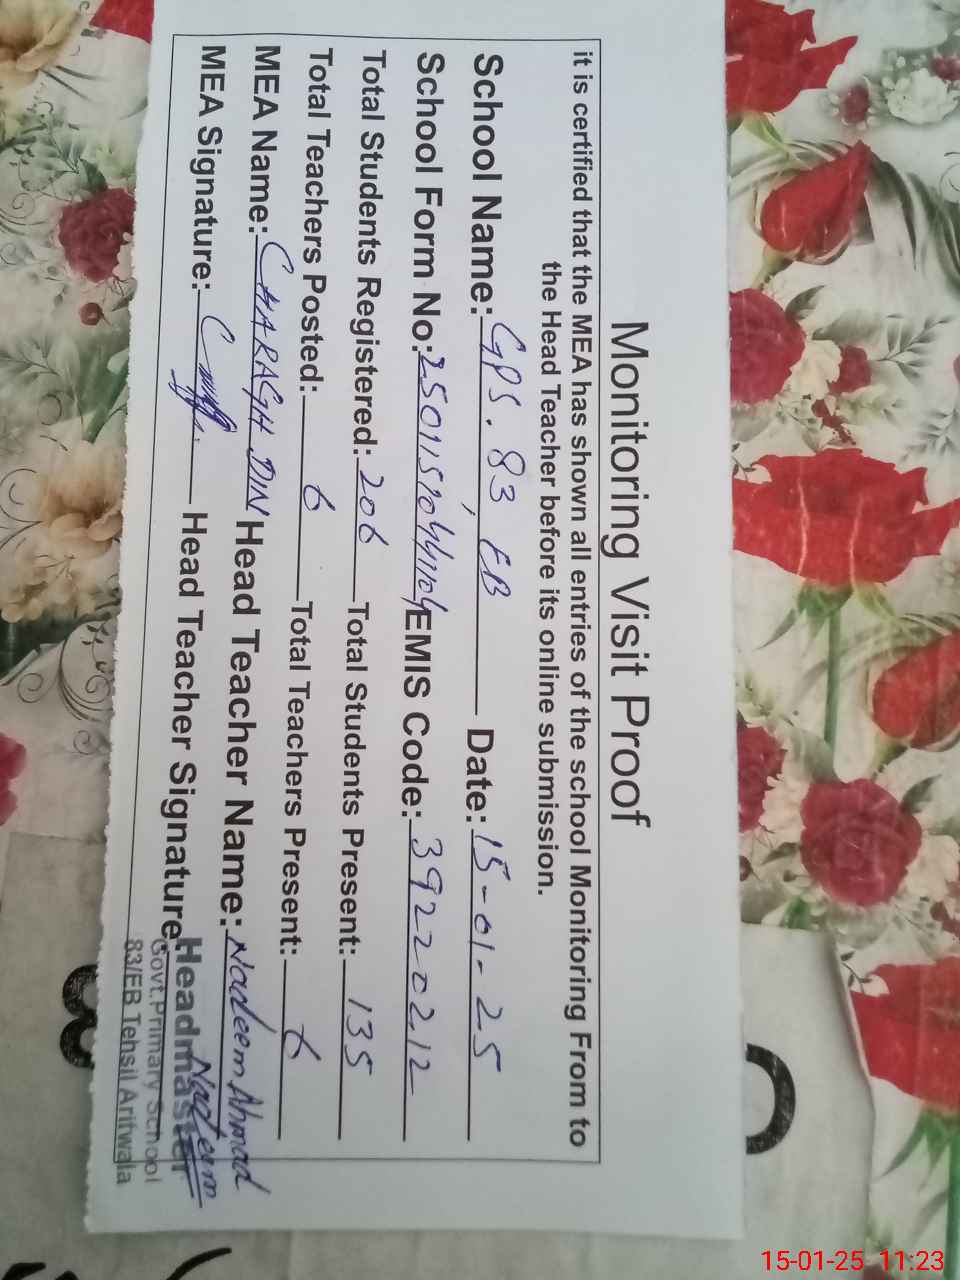 Monitoring Visit Proof
it is certified that the MEA has shown all entries of the school Monitoring From to
the Head Teacher before its online submission.
School Name: GPS. 83 EB Date: 15-01-25
School Form No: EMIS Code: 39220212
Total Students Registered: 206 Total Students Present: 135
Total Teachers Posted: 6 Total Teachers Present: 6
MEA Name: CHARAGH DIN Head Teacher Name: Nadeem Ahmad
MEA Signature: Head Teacher Signature: Nadeem
Headmaster
Govt.Primary School
83/EB Tehsil Arifwala
15-01-25 11:23